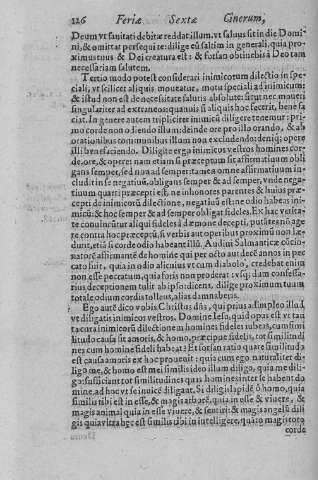 226 Feriæ Sextæ Cinerum,
Deum vt sanitati debitæ reddat illum, vt saluus sit in die Domini, & omittat persequi te: dilige eũ saltim in generali, quia proximus tuus & Dei creatura est: & forsan obtinebis à Deo tam necessariam salutem.
Tertio modo potest considerari inimicorum dilectio in speciali, vt scilicet aliquis moueatur, motu speciali ad inimicum: & istud non est de necessitate salutis absolutè: sicut nec moueri singulariter ad extraneos quamuis si aliquis hoc fecerit, bene faciat. In genere autem tripliciter inimicũ diligere tenemur: primo corde non odiendo illum: deinde ore pro illo orando, & ab orationibus communibus illum non excludendo: deniq; opere illi benefaciendo. Diligite ergo inimicos vestros homines corde, ore, & opere: nam etiam si præceptum sit affirmatiuum obligans semper, sed non ad semper: tamen omne affirmatiuum includit in se negatiuũ, obligans semper & ad semper, vnde negatiuum quarti præcepti est, ne inhonores parentes & huius præcepti de inimicorũ dilectione, negatiuũ est: ne odio habeas inimicũ: & hoc semper & ad semper obligat fideles. Ex hac veritate conuincũtur aliqui fideles à dæmone decepti, putãtes nõ agere contra hoc præceptũ, si verbis aut operibus proximũ non lædunt, etiã si corde odio habeant illũ. Audiui Salmanticæ cõcionatorẽ affirmantẽ de homine qui per octo aut decẽ annos in peccato fuit, quia in odio alicuius vt cum diabolo, credebat enim non esse peccatum, quia foris non proderat: vsq; dam confessarius deceptionem tulit ab ipso: dicens, dilige proximum tuum totale odium cordis tollens, alias damnaberis.
Ego autẽ dico vobis Christus dñs, qui prius adimpleo illud, vt diligatis inimicos vestros. Domine Iesu, quid opus est vt tanta cura inimicorũ dilectionem homines fideles iubeas, cum similitudo causa sit amoris, & homo, præcipue fidelis, tot similitudines cum homine fideli habeat? Et forsan ratio quare similitudo est causa amoris ex hoc prouenit: quia cum ego naturaliter diligo me, & homo est mei similis ideo illum diligo, quia me diligo: sufficiant tot similitudines quas homines inter se habent domine, ad hoc vt se inuicẽ diligant. Si diligis lapidẽ ô homo, quia similis tibi est in esse, & magis arborẽ, quia in esse & viuere, & magis animal quia in esse viuere, & sentire: & magis angelũ diligis quia vltra hęc est similis tibi in intelligere, quãto magis toto
corde